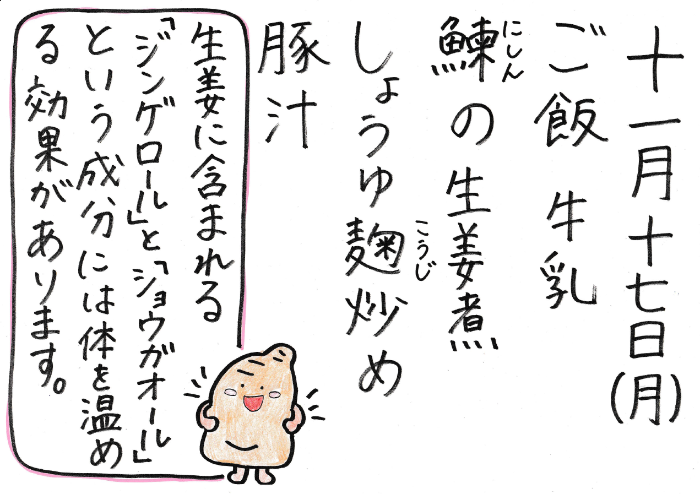 十一月十七日(月)
ご飯 牛乳
鰊の生姜煮
にしん
しょうゆ麹炒め
こうじ
豚汁
生姜に含まれる
「ジンゲロール」と「ショウガオール」
という成分には体を温め
る効果があります。